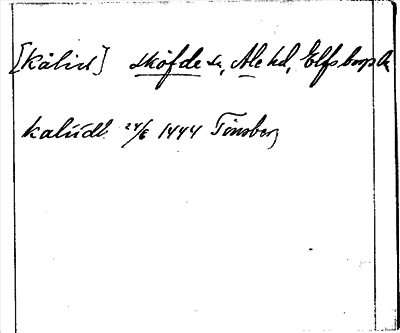 [Kålid] Sköfde sn, Ale hd, Elfsborgs l.
kaliidt 24/6 1444 Tönsberg